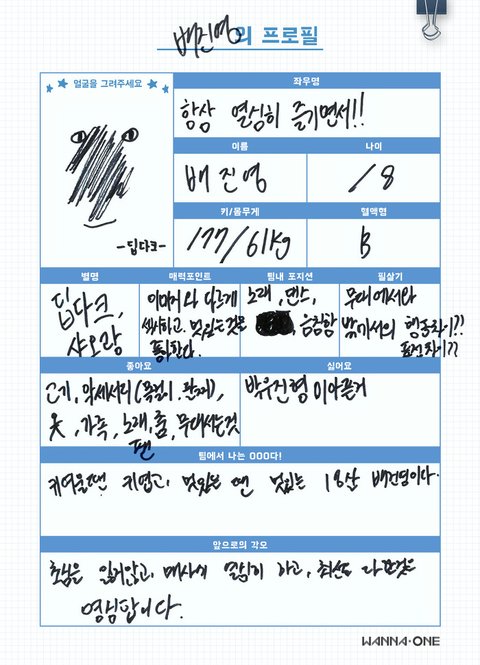 배진영의 프로필
얼굴을 그려주세요
-딥다크-
좌우명
항상 열심히 즐기면서!!
이름
배진영
나이
18
키/몸무게
177/61kg
혈액형
B
별명
딥다크,
샤오랑
매력포인트
이미지와 다르게
섹시하고, 멋있는것을
통틀한다.
팀내 포지션
노래, 댄스,
음침함
필살기
무대에서와
밖에서의 행동차이??
표정차이??
좋아요
고기, 악세서리(목걸이, 반지),
옷, 가족, 노래, 춤, 무대서는것
팬
싫어요
박우진형 이 아픈거
팀에서 나는 OOO다!
귀여울땐 귀엽고, 멋있을 땐 멋있는 18살 배진영이다.
앞으로의 각오
초심을 잃지않고, 매사에 열심히 하고, 최선을 다할것을
명심합니다.
WANNA·ONE